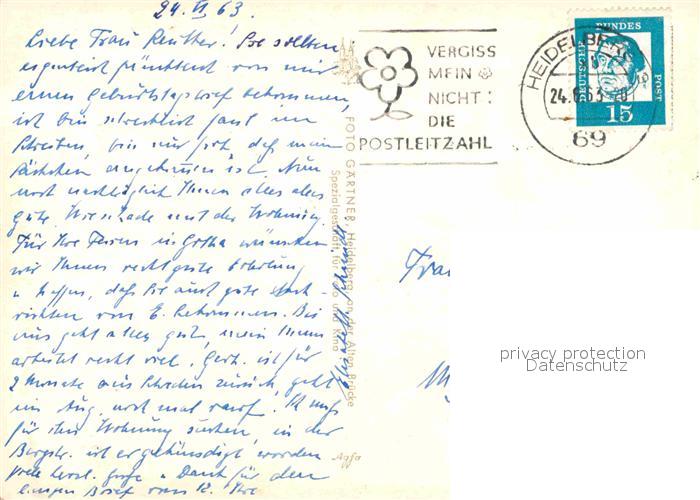 24. VI 63.
Liebe Frau Reutter! Sie sollten
eigentlich pünktlich von mir
einen Geburtstagsbrief bekommen,
ich bin schrecklich faul im
Schreiben, bin nur froh daß mein
Päckchen angekommen ist. Nun
noch nachträglich Ihnen alles alles
gute. Wie schade mit der Wohnung.
Für Ihre Ferien in Gotha wünschen
wir Ihnen recht gute Erholung
u. hoffen, daß Sie auch gute Nach-
richten von E. bekommen. Bei
uns geht alles gut, mein Mann
arbeitet recht viel, Gerh. ist für
2 Monate aus Schweden zurück, geht
im Aug. noch mal rauf. Ich muß
für ihn Wohnung suchen, in der
Bergstr. ist er gekündigt worden
Viele herzl. Grüße u. Dank für den
langen Brief vom 12. Ihre
Elisabeth Schmidt
FOTO GÄRTNER, Heidelberg an der Alten Brücke
Spezialgeschäft für Foto und Kino
Agfa
VERGISS
MEIN
NICHT:
DIE
POSTLEITZAHL
HEIDELBERG
24.6.63-20
69
DEUTSCHE BUNDESPOST
15
Frau
privacy protection
Datenschutz